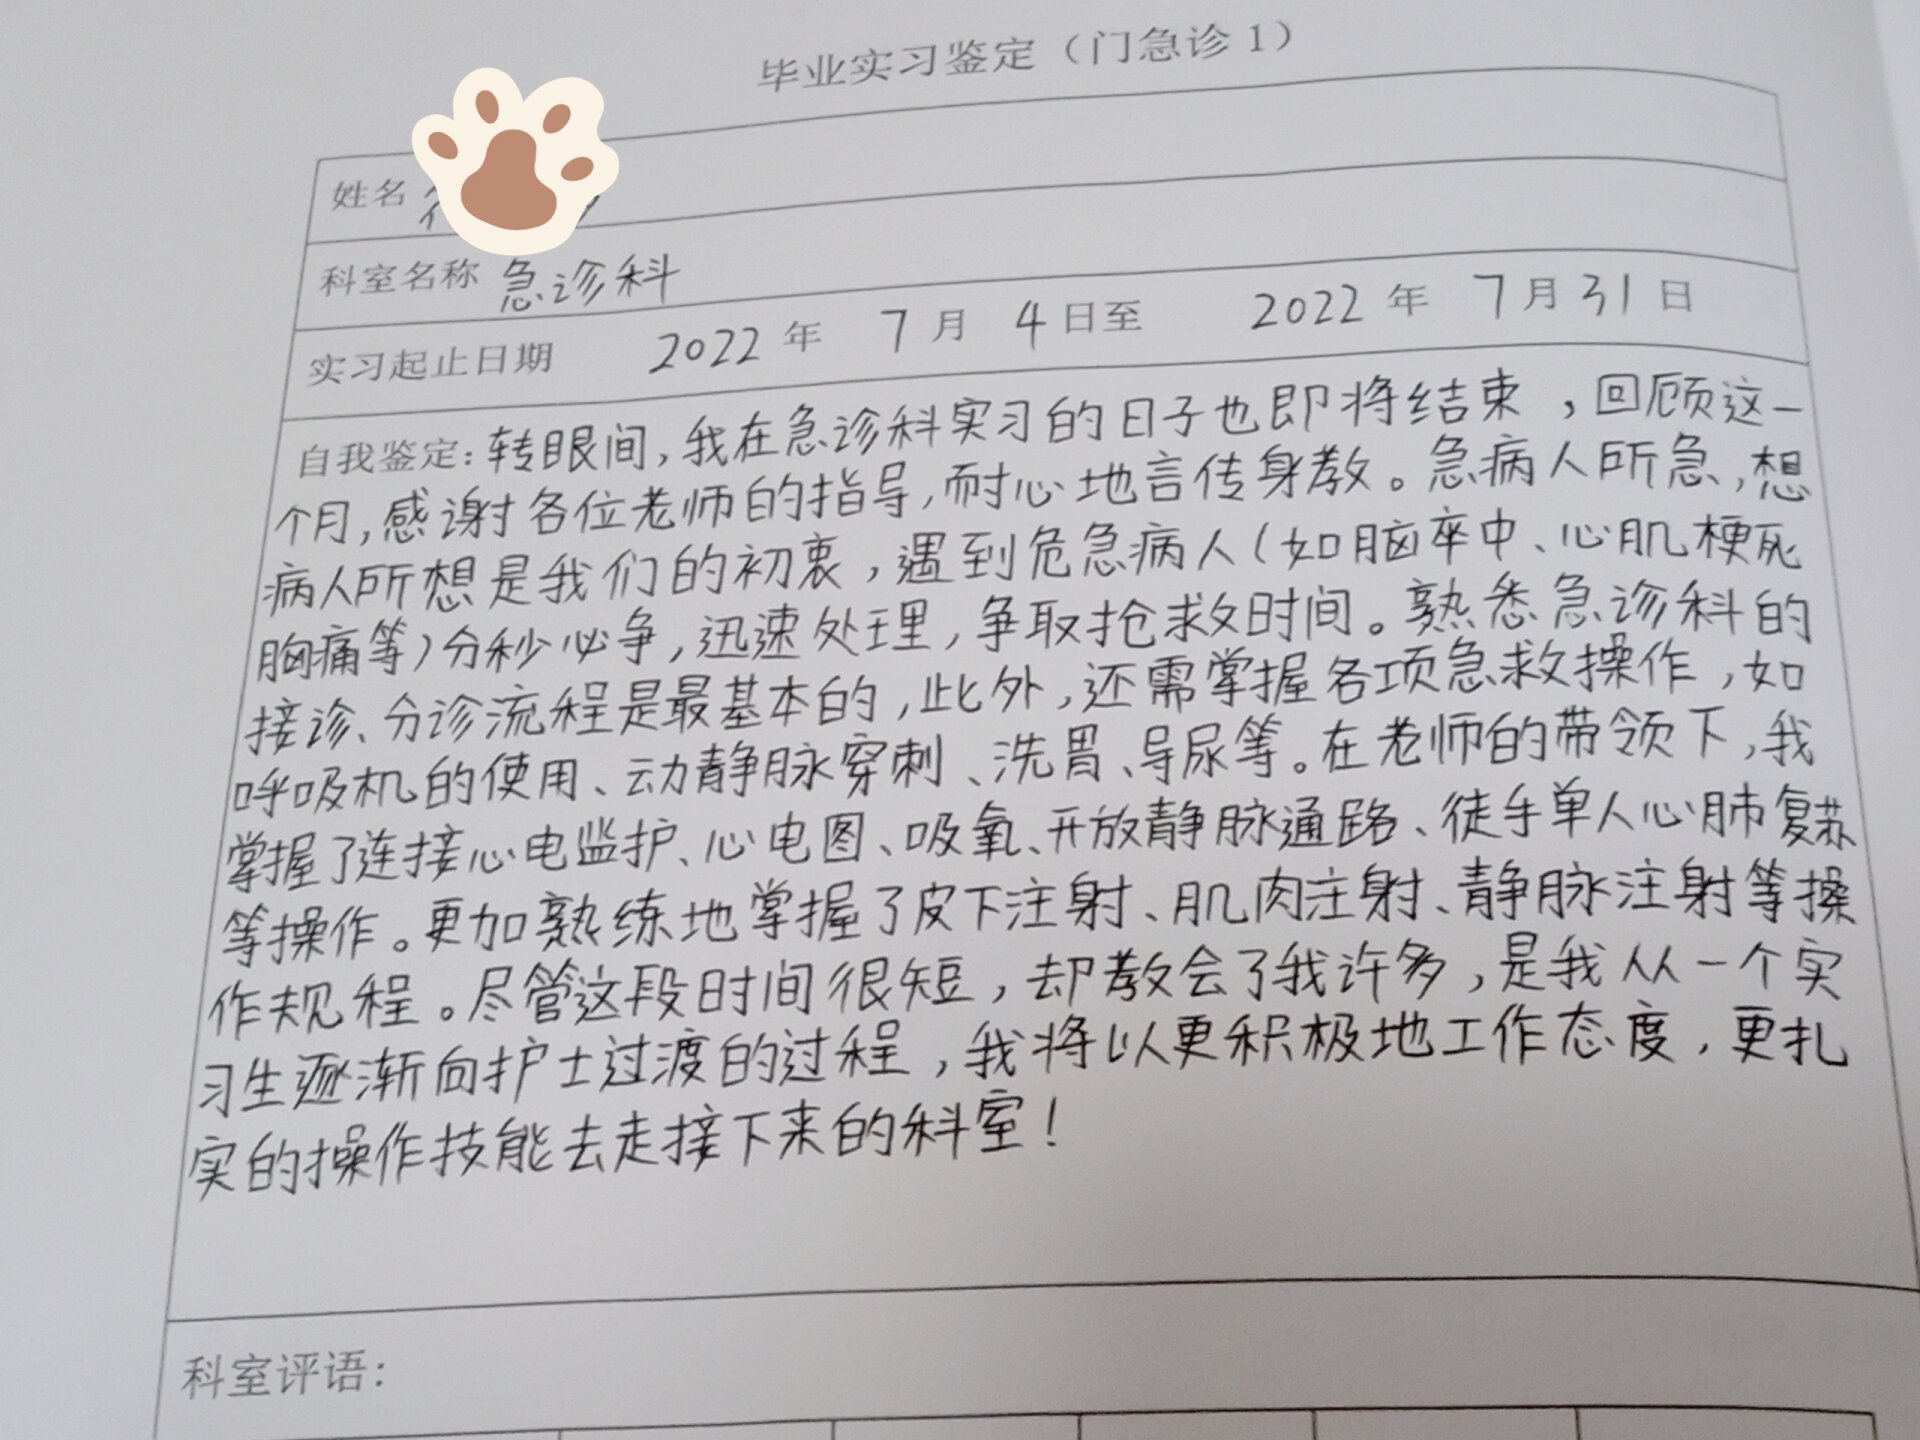 毕业实习鉴定（门急诊1）
姓名
科室名称 急诊科
实习起止日期 2022 年 7 月 4 日至 2022 年 7 月 31 日
自我鉴定：转眼间，我在急诊科实习的日子也即将结束，回顾这一
个月，感谢各位老师的指导，耐心地言传身教。急病人所急，想
病人所想是我们的初衷，遇到危急病人（如脑卒中、心肌梗死
胸痛等）分秒必争，迅速处理，争取抢救时间。熟悉急诊科的
接诊、分诊流程是最基本的，此外，还需掌握各项急救操作，如
呼吸机的使用、动静脉穿刺、洗胃、导尿等。在老师的带领下，我
掌握了连接心电监护、心电图、吸氧、开放静脉通路、徒手单人心肺复苏
等操作。更加熟练地掌握了皮下注射、肌肉注射、静脉注射等操
作规程。尽管这段时间很短，却教会了我许多，是我从一个实
习生逐渐向护士过渡的过程，我将以更积极地工作态度，更扎
实的操作技能去走接下来的科室！
科室评语：